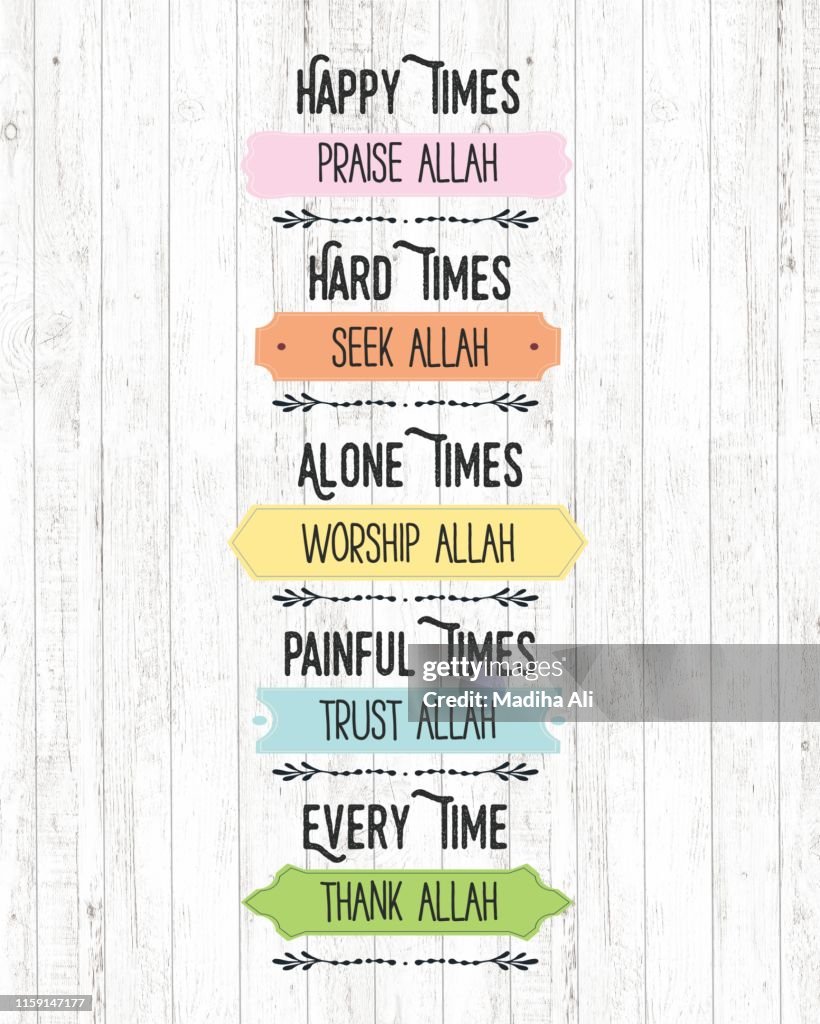 HAPPY TIMES
PRAISE ALLAH
HARD TIMES
SEEK ALLAH
ALONE TIMES
WORSHIP ALLAH
PAINFUL TIMES
gettyimages
Credit: Madiha Ali
TRUST ALLAH
EVERY TIME
THANK ALLAH
1159147177